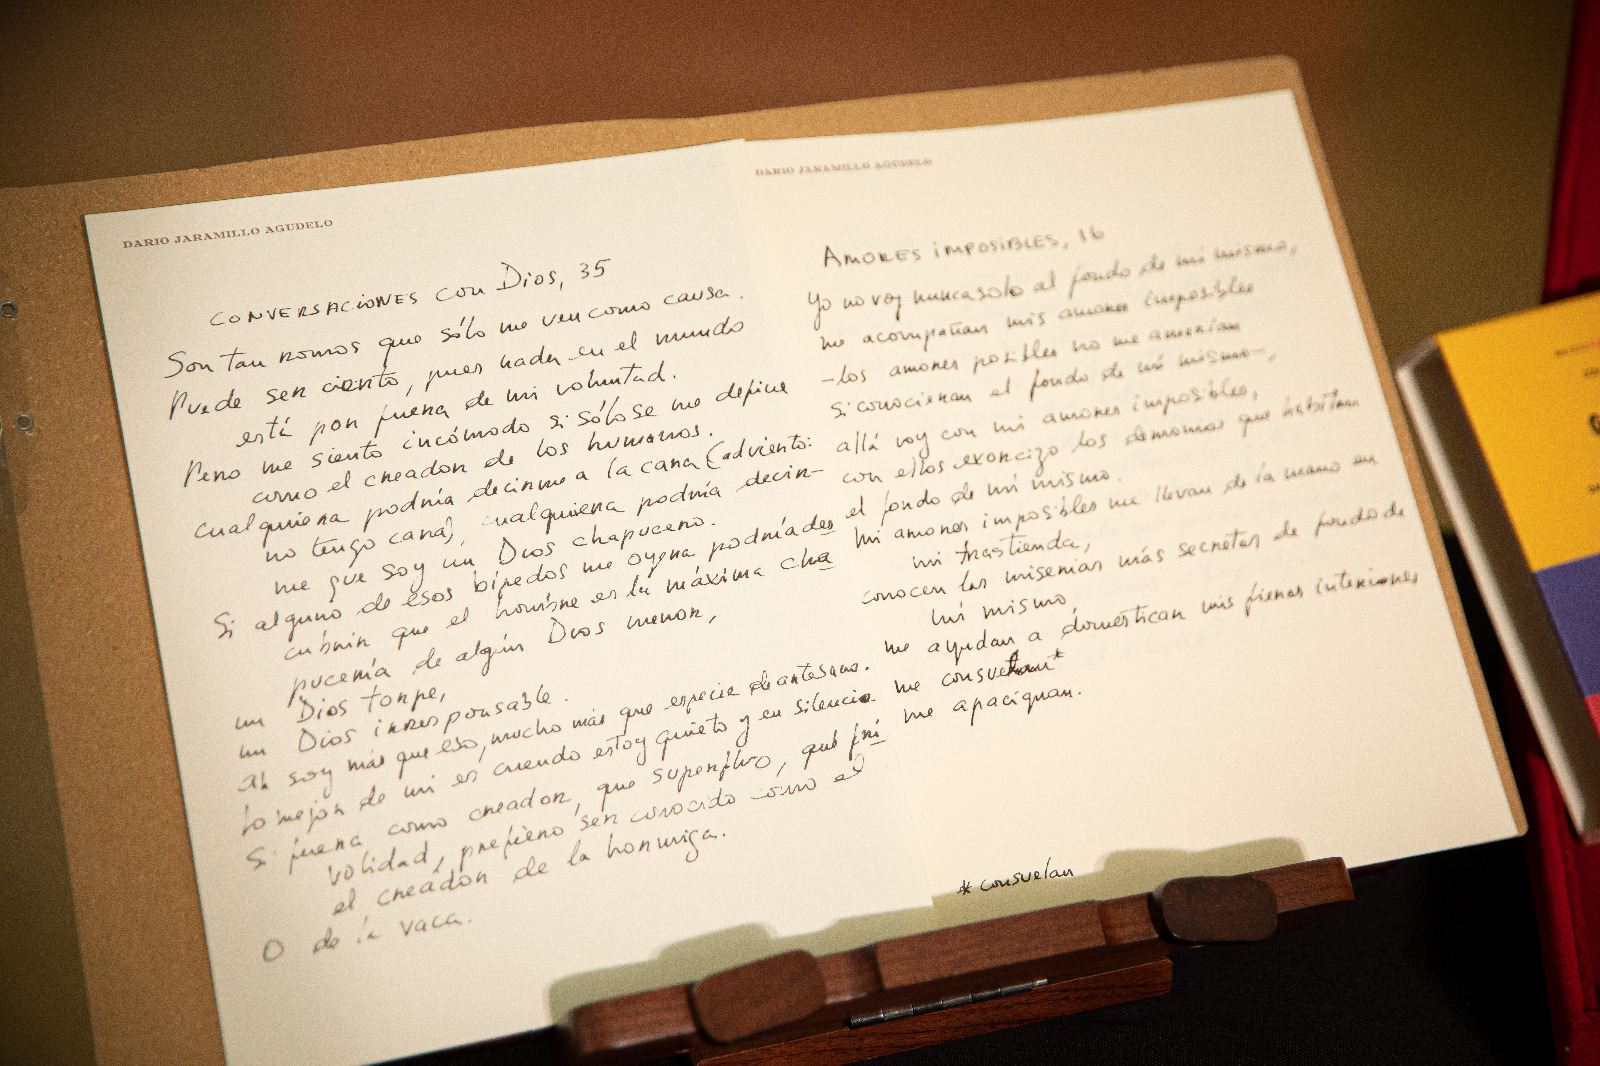 DARIO JARAMILLO AGUDELO
CONVERSACIONES CON DIOS, 35
Son tan romos que sólo me ven como causa.
Puede ser cierto, pues nada en el mundo
está por fuera de mi voluntad.
Pero me siento incómodo si sólo se me define
como el creador de los humanos.
Cualquiera podría decirme a la cara (advierto:
no tengo cara), cualquiera podría decir-
me que soy un Dios chapucero.
Si alguno de esos bípedos me oyera podría des
cubrir que el hombre es la máxima cha
pucería de algún Dios menor,
un Dios torpe,
un Dios irresponsable.
soy más que eso, mucho más que especie de artesano.
Lo mejor de mí es cuando estoy quieto y en silencio.
Si fuera como creador, que superfluo, qué fri
volidad, prefiero ser conocido como el
el creador de la hormiga.
O de la vaca.
DARIO JARAMILLO AGUDELO
AMORES IMPOSIBLES, 16
Yo no voy nunca solo al fondo de mí mismo,
me acompañan mis amores imposibles
—los amores posibles no me amarían
si conocieran el fondo de mí mismo—,
allá voy con mis amores imposibles,
con ellos exorcizo los demonios que habitan
el fondo de mí mismo.
Mi amores imposibles me llevan de la mano en
mi trastienda,
conocen las miserias más secretas de fondo de
mí mismo,
me ayudan a domestican mis fieras interiores
me consuelan*
me apaciguan.
* consuelan